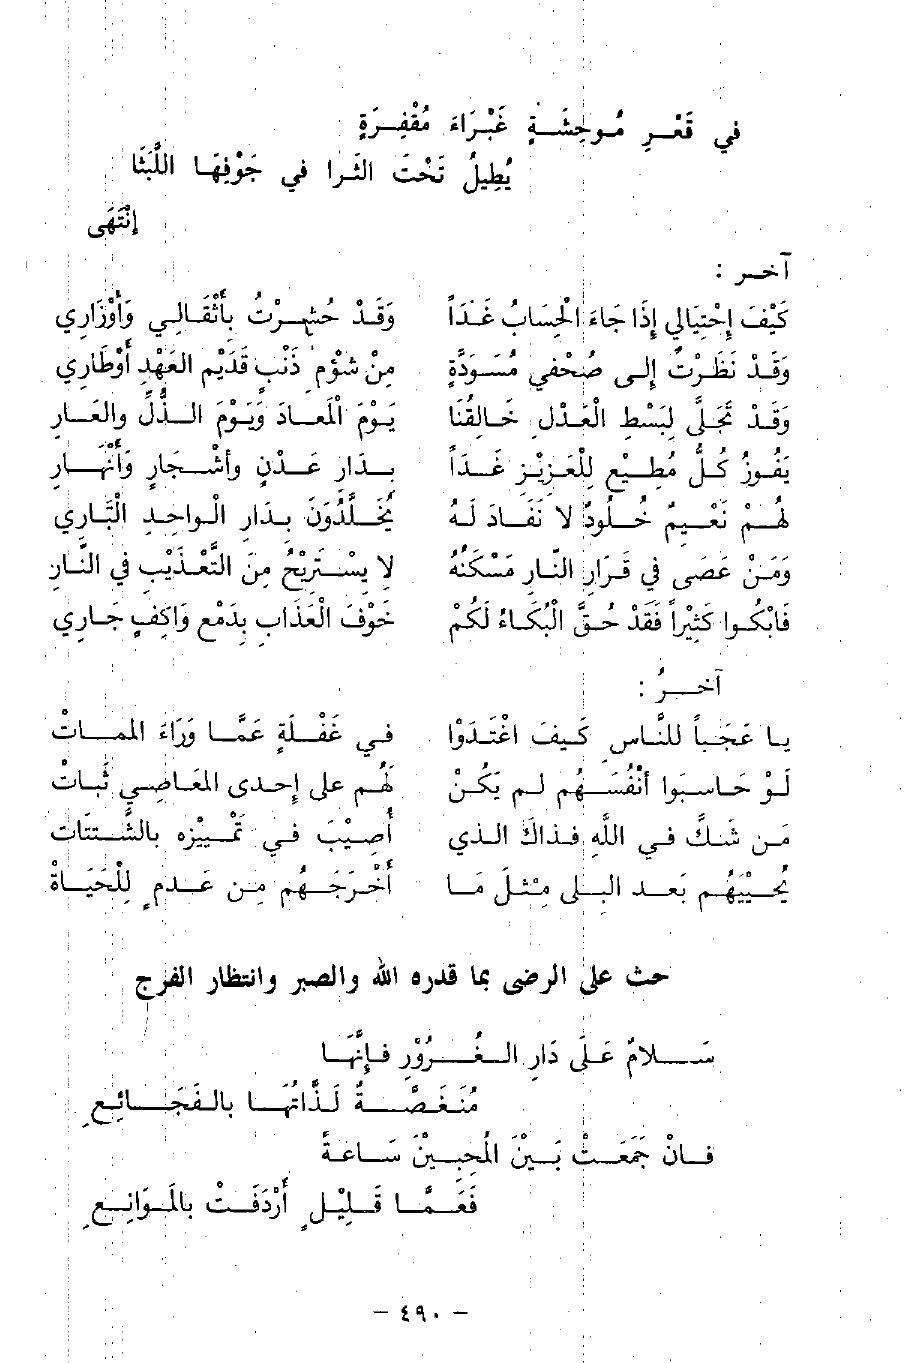 في قَعْرِ مُوحِشَةٍ غَبْرَاءَ مُقْفِرَةٍ
يُطِيلُ تَحْتَ الثَرا في جَوْفِهَا اللُّبَثَا
إنْتَهَى
آخر :
كَيْفَ إحْتِيَالِي إذَا جَاءَ الْحِسَابُ غَدَاً وَقَدْ حُشِرْتُ بأَثْقَالِي وَأَوْزَارِي
وَقَدْ نَظَرْتُ إلى صُحْفي مُسَوَدَّةٍ مِنْ شُؤْمِ ذَنْبٍ قَدْيِم العَهْدِ أوْطَارِي
وَقَدْ تَجَلَّى لِبَسْطِ الْعَدْلِ خَالِقُنَا يَوْمَ الْمَعادَ وَيَوْمَ الذُلِّ والعَارِ
يَفُوزُ كُلُّ مُطِيْعٍ لِلْعَزِيْزِ غَداً بِدَارِ عَدْنٍ وأشْجَارٍ وَأنْهَارِ
لهُمْ نَعْيِمُ خُلُودٌ لا نَفَادَ لَهُ يُخَلَّدُوَنَ بِدَارِ الْواحِدِ الْبَّارِي
وَمَنْ عَصَى فِي قَرَارِ النَّارِ مَسْكَنُهُ لا يَسْتَرِيْحُ مِنَ التَّعْذِيْبِ فِي النَّارِ
فَابْكُوا كَثيْراً فَقَدْ حُقَّ الْبُكَاءُ لَكُمْ خَوْفَ الْعَذَابِ بِدَمْعٍ وَاكِفٍ جَارِي
آخرُ :
يا عَجَباً لِلنَّاسِ كَيفَ اغْتَدَوْا في غَفْلَةٍ عَمَّا وَرَاءَ الممَاتْ
لَوْ حَاسَبُوا أنْفُسَهُم لم يَكُنْ لهُم على إحْدى المَعَاصِي ثُبَاتْ
مَن شَكَّ في اللَّهِ فذاكَ الذي أصِيْبَ في تَمْييزه بالشَّتَاتِ
يُحْيْيْهُم بَعد البِلى مِثْلَ مَا أخْرَجَهُم مِن عَدمٍ لِلْحَيَاة
حث على الرضى بما قدره الله والصبر وانتظار الفرج
سَلامٌ عَلَى دَارِ الغُرُوْرِ فإنَّهَا
مُنَغَصَةٌ لَذَّاتُهَا بالفَجَائِعِ
فإنْ جَمَعَتْ بَيْنَ الْمُحبينَ سَاعةً
فَعَمَّا قَلِيْلٍ أَرْدَفَتْ بالْمَوَانِعِ
- ٤٩٠ -